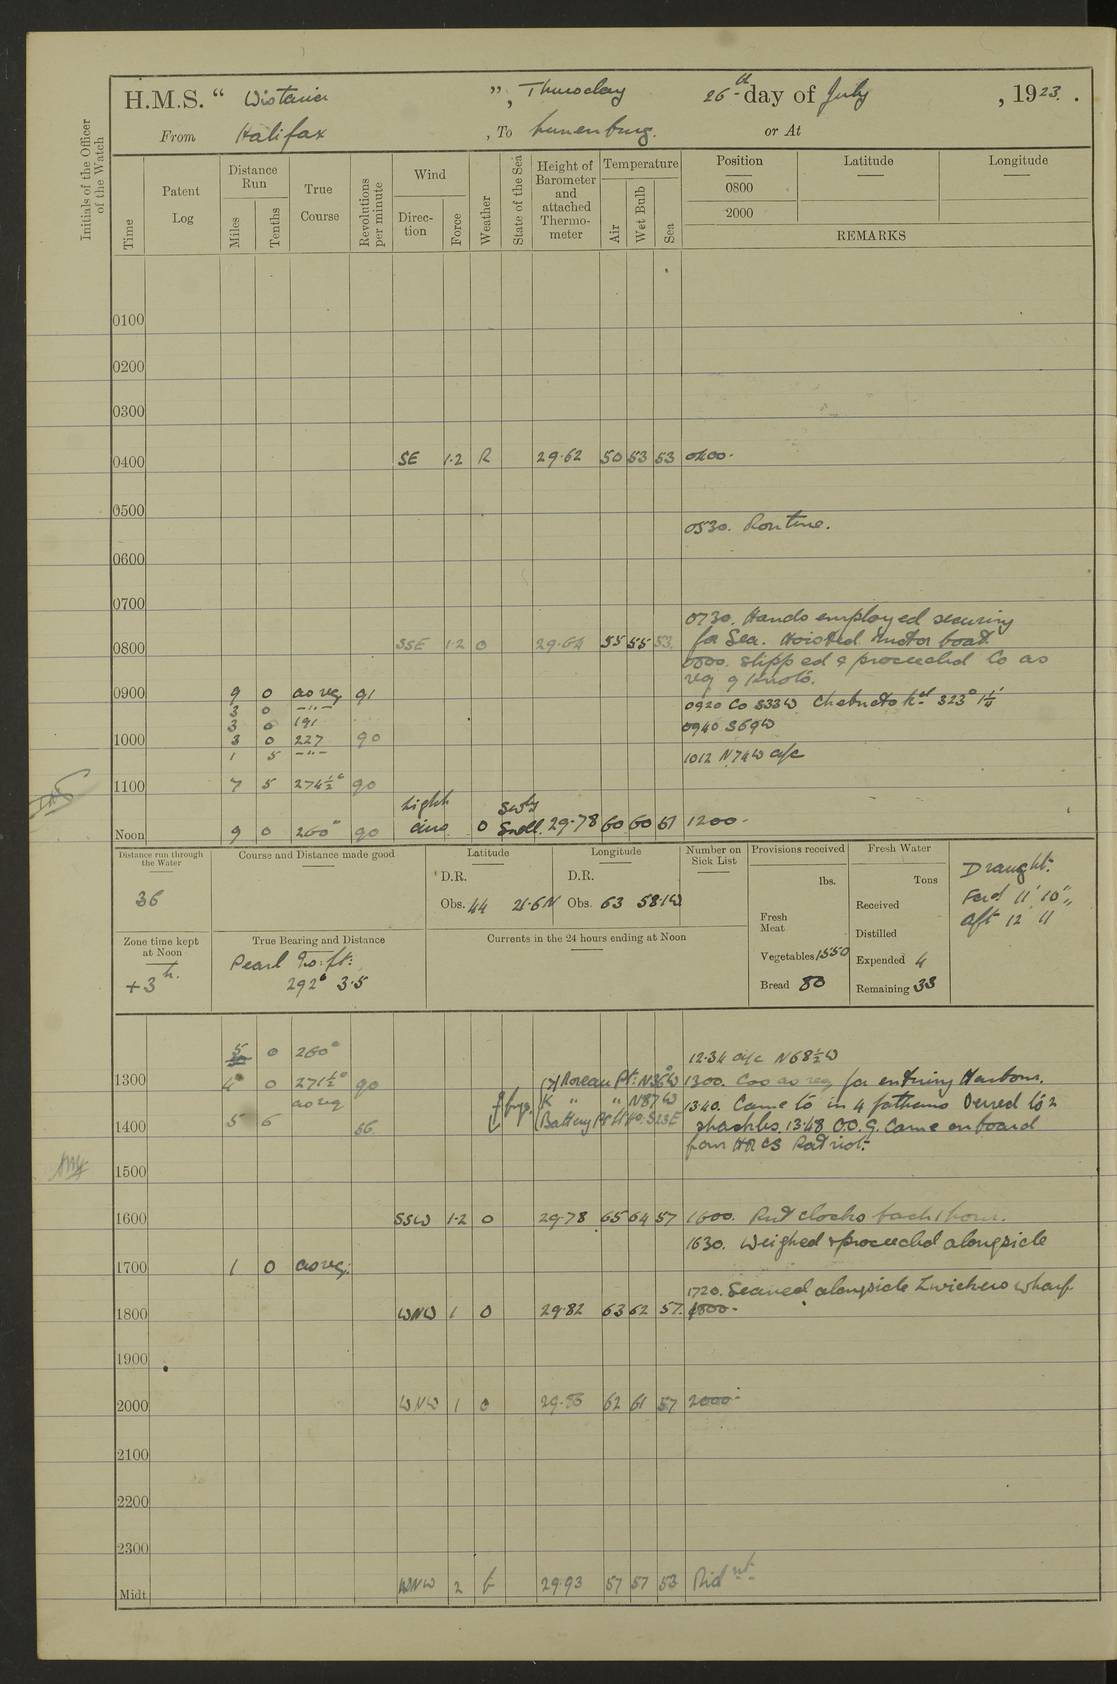 H.M.S. “ Wistaria ”, Thursday 26th day of July, 1923.
From Halifax, To Lunenburg. or At
Initials of the Officer of the Watch
Time
Patent Log
Distance Run
Miles
Tenths
True Course
Revolutions per minute
Wind
Direction
Force
Weather
State of the Sea
Height of Barometer and attached Thermometer
Temperature
Air
Wet Bulb
Sea
Position Latitude Longitude
0800
2000
REMARKS
0100
0200
0300
0400 SE 1·2 R 29·62 50 53 53 0400.
0500
0530. Routine.
0600
0700
0730. Hands employed securing
for Sea. Hoisted Motor boat
0800 SSE 1·2 O 29·64 55 55 53
0800. Slipped & proceeded Co as
req 9 Knots.
0900 9 0 as req 91
3 0 -"- 0920 Co S33W Chebucto Hd 323° 1¼'
3 0 191 0940 S69W
1000 3 0 227 90
1 5 -"- 1012 N74W a/c
1100 7 5 274½° 90
Light Swly
Noon 9 0 260° 90 airs O Swell 29·78 60 60 61 1200.
Distance run through the Water
36
Course and Distance made good
Latitude
D.R.
Obs. 44 21·6N
Longitude
D.R.
Obs. 63 58·1W
Number on Sick List
Provisions received
lbs.
Fresh Meat
Vegetables 1550
Bread 80
Fresh Water
Tons
Received
Distilled
Expended 4
Remaining 33
Draught:
Ford 11' 10"
Aft 12 11
Zone time kept at Noon
+3h.
True Bearing and Distance
Pearl
292° 3·5
Currents in the 24 hours ending at Noon
5 0 260° 12·34 a/c N68½W
1300 4 0 271½° 90 Moreau Pt: N36°W 1300. Cos as req for entering Harbour.
as req brgs. K " " N87W 1340. Came to in 4 fathoms Veered to 2
1400 5 6 66 Battery Pt Lt Ho. S23E shackles. 1348 O.O.G. Came on board
from HMCS Patriot.
1500
1600 SSW 1·2 O 29·78 65 64 57 1600. Put clocks back 1 hour.
1630. Weighed & proceeded alongside
1700 1 0 as req:
1720. Secured alongside Zwickers wharf
1800 WNW 1 O 29·82 63 62 57. 1800.
1900
2000 WNW 1 O 62 61 57 2000
2100
2200
2300
Midt WNW 2 b 29·93 57 57 53 Mid nt.